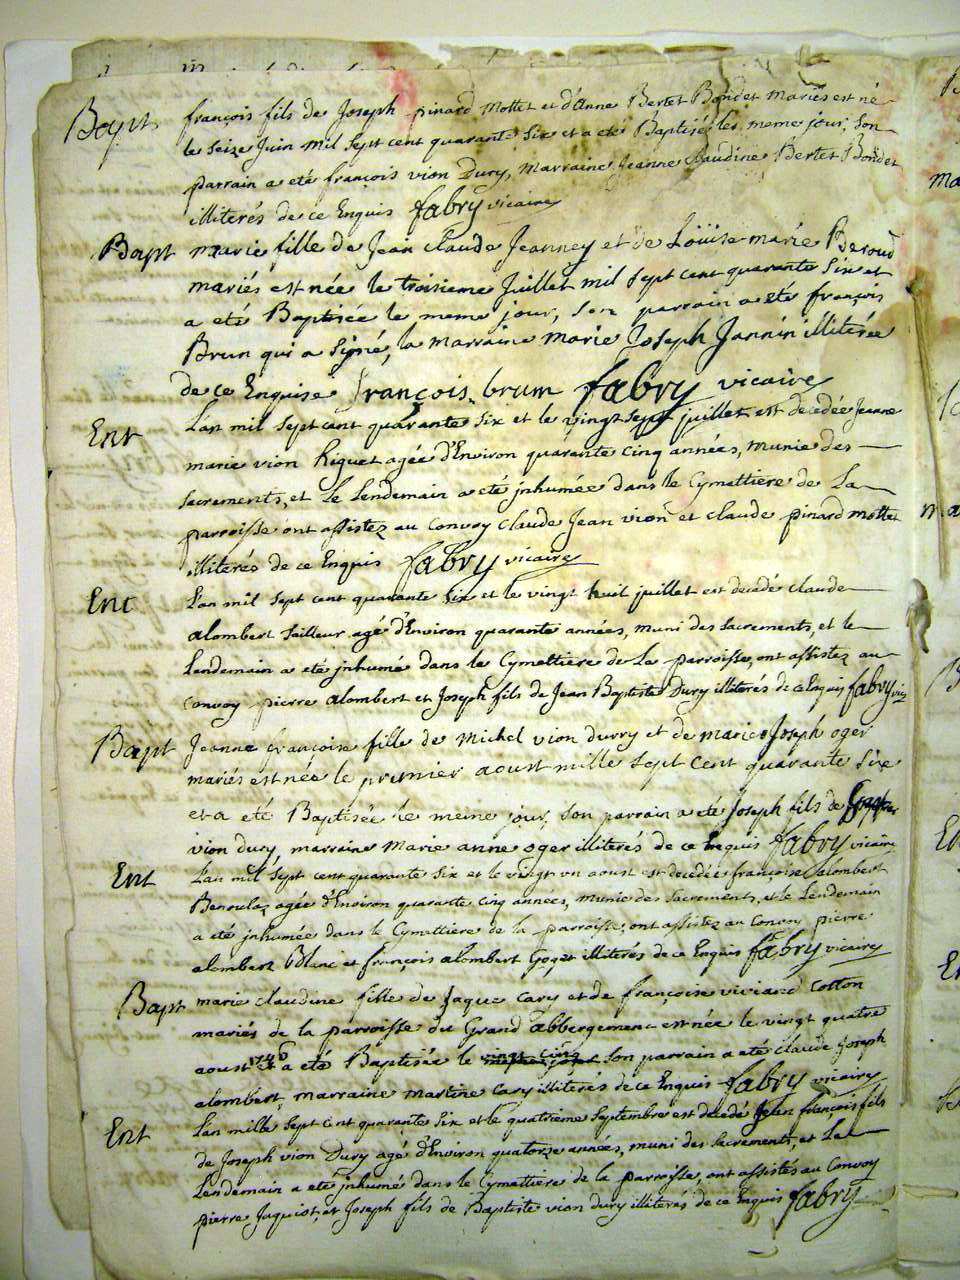 Bapt françois fils de Joseph pinard Mottet et d'Anne Bertet Bondet mariés est né
le seize Juin mil sept cent quarante six et a eté Baptisé le meme jour, son
parrain a eté françois vion Dury, marraine Jeanne Claudine Bertet Bondet
illiterés de ce Enquis fabry vicaire
Bapt marie fille de Jean claude Jeanney et de Loüise marie Beroud
mariés est née le troisieme Juillet mil sept cent quarante six et
a eté Baptisée le meme jour, son parrain a eté françois
Brun qui a signé, la marraine marie Joseph Jannin illiterée
de ce Enquise françois brum fabry vicaire
Ent L'an mil sept cent quarante six et le vingt sept juillet est decedée Jeanne
marie vion Riguet agée d'Environ quarante cinq années, munie des
sacrements, et le Lendemain a eté jnhumée dans le Cymettiere de La
parroisse ont assistez au convoy claude Jean vion et claude pinard mottet
illiterés de ce Enquis fabry vicaire
Ent L'an mil sept cent quarante six et le vingt huit juillet est decedé claude
alombert tailleur agé d'Environ quarante années, muni des sacrements, et le
Lendemain a eté jnhumé dans le Cymettiere de La parroisse, ont assistez au
convoy pierre alombert et Joseph fils de Jean Baptiste Dury illiterés de ce Enquis fabry vic
Bapt Jeanne françoise fille de Michel vion durry et de marie Joseph oger
mariés est née le prmier aoust mille sept cent quarante six
et a été Baptisée le meme jour, son parrain a eté Joseph fils de
vion dury marraine Marie anne oger illiterés de ce Enquis fabry vicaire
Ent L'an mil sept cent quarante six et le vingt un aoust est decedée françoise alombert
Benoulaz agée d'Environ quarante cinq années, munie des sacrements, et le Lendemain
a eté jnhumée dans le Cymettiere de la parroisse, ont assistez au Convoy pierre
alombert Blanc et françois alombert Goget illiterés de ce Enquis fabry vicaire
Bapt marie claudine fille de Jaque Cary et de françoise viviand Cotton
mariés de la parroisse du Grand abbergement est née le vingt quatre
aoust 1746 et a eté Baptisée le vingt cinq son parrain a eté claude Joseph
alombert, marraine martine Cary illiterés de ce Enquis fabry vicaire
Ent L'an mille sept cent quarante six et le quatrieme septembre est decedé Jean françois fils
de Joseph vion Dury agé d'Environ quatorze années, muni des sacrements, et Le
Lendemain a eté jnhumé dans le Cymettiere de la parroisse, ont assistés au Convoy
pierre Juquiot, et Joseph fils de Baptiste vion dury illiterés de ce Enquis fabry